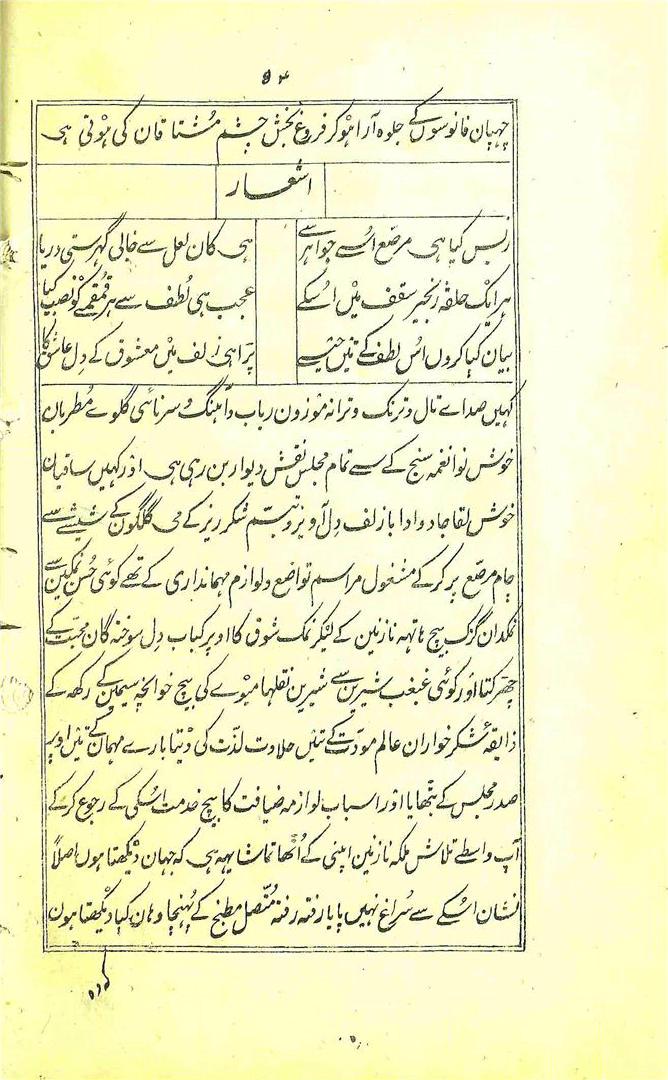 ۹۴
چہپان فانوسوں کے جلوہ آرا ہوکر فروغ بخش چشم مشتاقان کی ہوتی ہی
اشعار
زبس کیا ہی مرصّع اُسے جواہر سے ہی کان لعل سے خالی گہر ستی دریا
ہر ایک حلقہ زنجیر سقف میں اُسکے عجب ہی لُطف سے ہر قمقمے کو نصب کیا
بیان کیا کروں اُس لطف کے تئیں جیسے پڑا ہی زلف میں معشوق کے دل عاشق کا
کہیں صداے تال و ترنگ و ترانہ موزون رباب و آہنگ و سرنائی گلوے مطربان
خوش نوا نغمہ سنج کے سے تمام مجلس نقش دیوار بن رہی ہی اور کہیں ساقیان
خوش لقا جادو ادا با زلف دل آویز و تبسّم شکر ریز کے می گلگون کے شیشے سے
جام مرصّع پر کر کے مشغول مراسم تواضع و لوازم مہمانداری کے تھے کوئی حُسن نمکین سے
نمکدان گزک بیچ ہاتہہ نازنین کے لیکر نمک شوق کا اوپر کباب دل سوختہ گان محبت کے
چھرکتا اور کوئی غبغب شیرین سے شیرین نقلہا میوے کی بیچ خوانچہ سیمین کے رکھہ کے
ذایقہ شکر خواران عالم مودت کے تئیں حلاوت لذّت کی دیتا بارے مہمان کے تئیں اوپر
صدر مجلس کے بتھایا اور اسباب لوازمہ ضیافت کا بیچ خدمت اسکی کے رجوع کر کے
آپ واسطے تلاش ملکہ نازنین اپنی کے اُتھا تماشا یہہ ہی کہ جہان دیکھتا ہوں اصلاً
نشان اُسکے سے سُراغ نہیں پایا رفتہ رفتہ متّصل مطبخ کے پُہنچا وہان کیا دیکھتا ہون